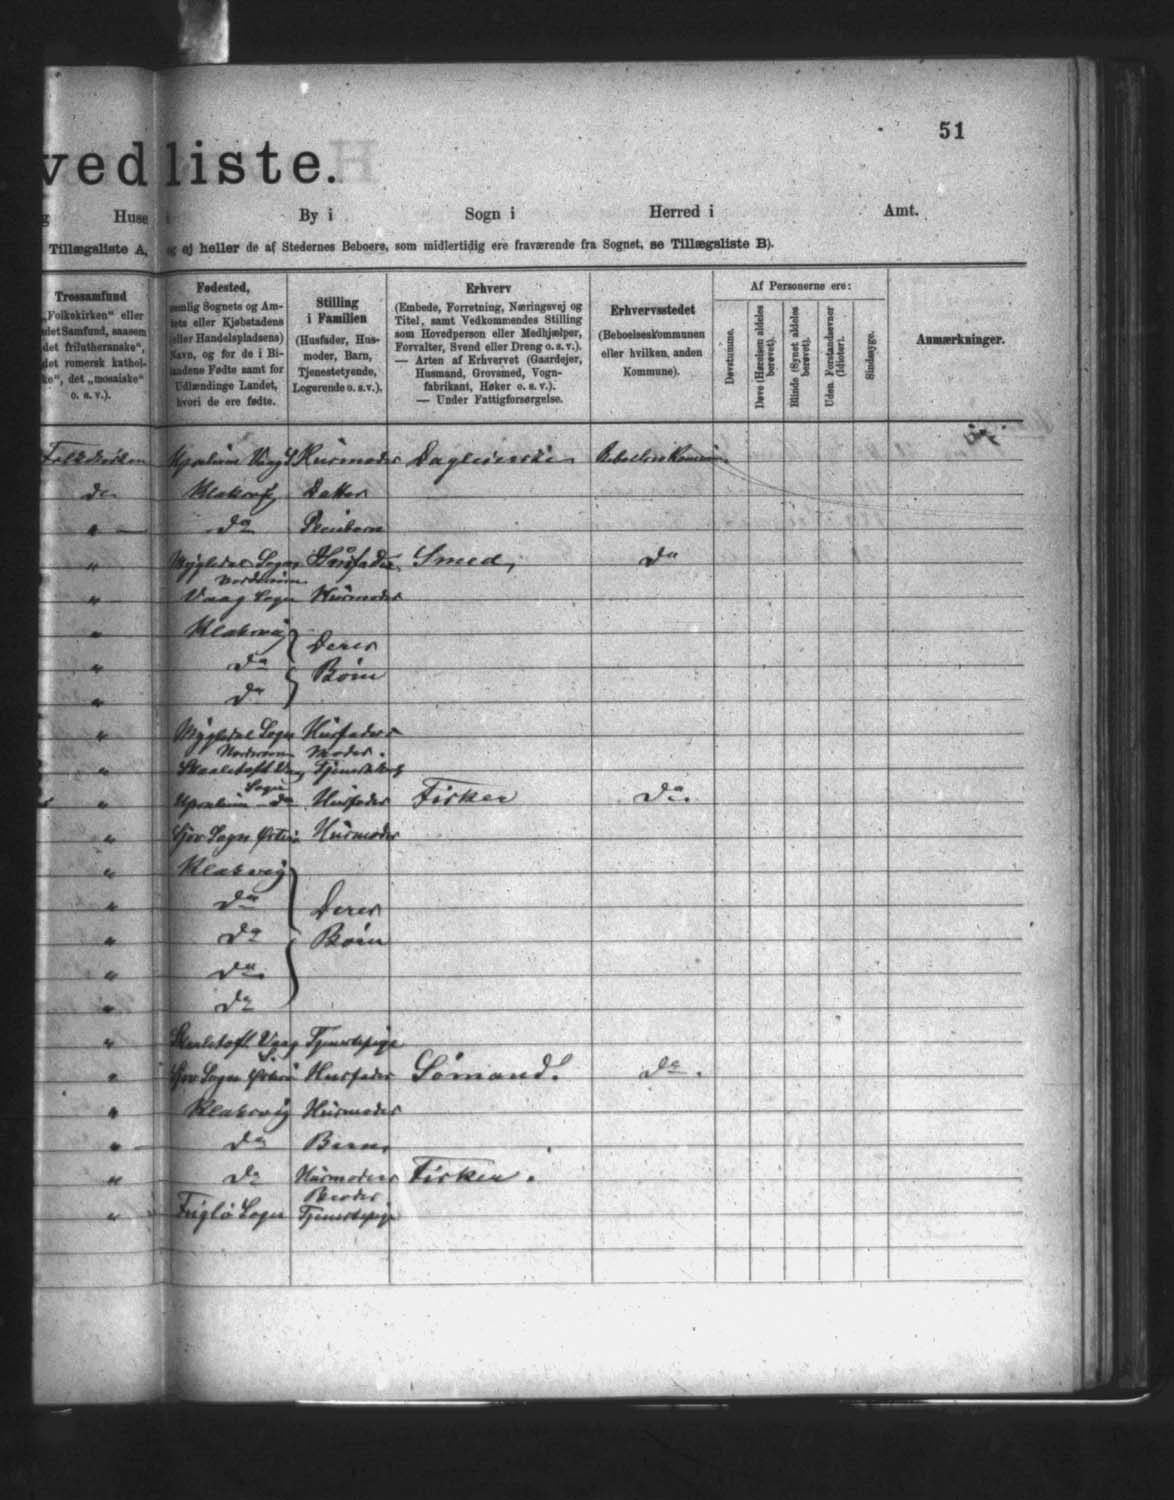 51
vedliste.
g Huse i By i Sogn i Herred i Amt.
Tillægsliste A, og ej heller de af Stedernes Beboere, som midlertidig ere fraværende fra Sognet, se Tillægsliste B).
Trossamfund
„Folkekirken“ eller
det Samfund, saasom
det frilutheranske“,
det romersk kathol-
ke“, det „mosaiske“
o. s. v.).
Fødested,
nemlig Sognets og Am-
tets eller Kjøbstadens
(eller Handelspladsens)
Navn, og for de i Bi-
landene Fødte samt for
Udlændinge Landet,
hvori de ere fødte.
Stilling
i Familien
(Husfader, Hus-
moder, Barn,
Tjenestetyende,
Logerende o. s. v.).
Erhverv
(Embede, Forretning, Næringsvej og
Titel, samt Vedkommendes Stilling
som Hovedperson eller Medhjælper,
Forvalter, Svend eller Dreng o. s. v.).
— Arten af Erhvervet (Gaardejer,
Husmand, Grovsmed, Vogn-
fabrikant, Høker o. s. v.).
— Under Fattigforsørgelse.
Erhvervsstedet
(Beboelseskommunen
eller hvilken anden
Kommune).
Af Personerne ere:
Døvstumme.
Døve (Hørelsen aldeles
berøvet).
Blinde (Synet aldeles
berøvet).
Uden Forstandsevner
(Idioter).
Sindssyge.
Anmærkninger.
Folkekirken Husmoder
do Klaksvig Datter
" do Pleiebarn
" Mygledal Sogn Husfader Smed, do
Norderøerne
" Vaag Sogn Husmoder
" Klaksvig
Deres
" do
Børn
" do
" Mygledal Sogn Husfaders
Norderøerne Moder.
" Skaaletoft Vaag
Sogn
" do Husfader Fisker do.
" Sogn Husmoder
" Klaksvig
" do Deres
" do Børn
" do
" do
" Skaaletoft Vaag Tjenestepige
" Sogn Husfader Sømand. do.
" Klaksvig Husmoder
" do Barn
" do Husmoders Fisker.
Broder
" Fuglø Sogn Tjenestepige